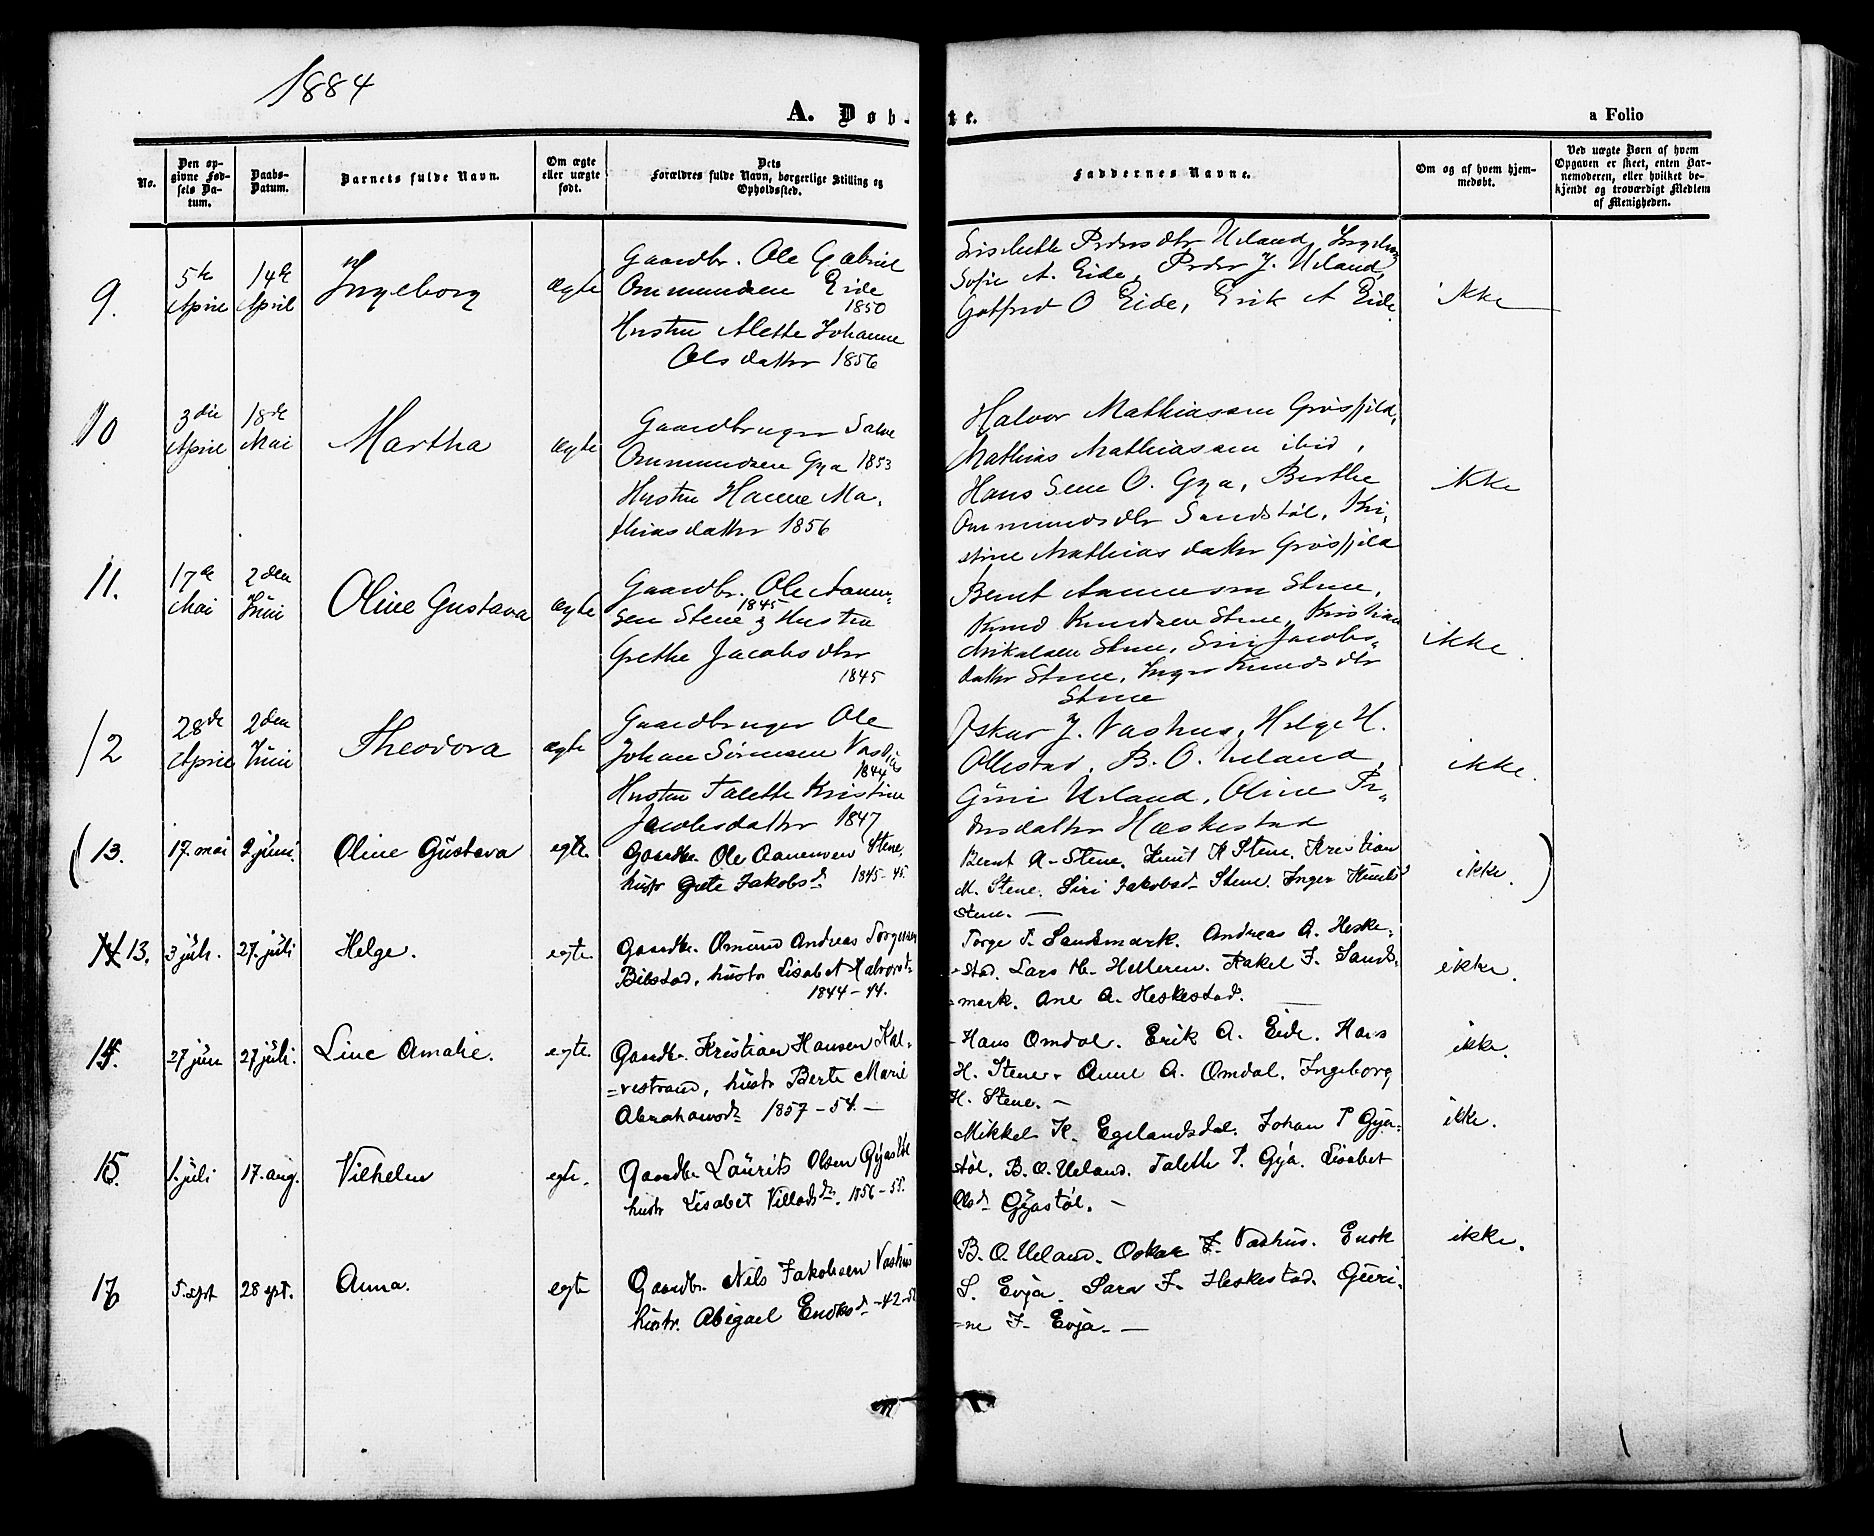 1884
A. Døb-
te.
a Folio
No.
Den op-
givne Fød-
sels Da-
tum.
Daabs-
Datum.
Barnets fulde Navn.
Om ægte
eller uægte
født.
Dets
Forældres fulde Navn, borgerlige Stilling og
Opholdssted.
Faddernes Navne.
Om og af hvem hjem-
medøbt.
Ved uægte Børn af hvem
Opgaven er skeet, enten Bar-
nemoderen, eller hvilket be-
kjendt og troværdigt Medlem
af Menigheden.
9.
5te
April
14de
April
Ingeborg
ægte
Gaardbr. Ole Gabriel
Ommundsen Eide
1850
Hustru Alette Johanne
Olsdatter 1856
Lisebette Pedersdtr Ueland, Ingeborg
Sofie A. Eide, Peder J. Ueland,
Gotfred O Eide, Erik A Eide.
ikke
10
3die
April
18de
Mai
Martha
ægte
Gaardbruger Salve
Ommundsen Gya 1853
Hustru Hanne Ma-
thiasdatter 1856
Halvor Mathiassen Grøsfjeld,
Mathias Mathiassen ibid,
Hans Sem O. Gya, Berthe
Ommundsdtr Sandstøl, Kri-
stine Mathiasdatter Grøsfjeld
ikke
11.
17de
Mai
2den
Juni
Oline Gustava
ægte
Gaardbr. Ole Aanen-
sen Stene 1845 & Hustru
Grethe Jacobsdtr
1845
Bernt Aanensen Stene,
Knud Knudsen Stene, Kristian
Mikalsen Stene, Siri Jacobs-
datter Stene, Inger Knudsdtr
Stene
ikke.
12
28de
April
2den
Juni
Theodora
ægte
Gaardbruger Ole
Johan Sørensen Vashus
1844
Hustru Talette Kristine
Jacobsdatter 1847
Oskar J. Vashus, Helge H.
Ollestad, B. O. Ueland,
Güri Ueland, Oline Pe-
dersdatter Heskestad
ikke.
(13.
17. mai
2 juni
Oline Güstava
egte.
Gaardbr. Ole Aanensen Stene,
hustr Grete Jakobsd. 1845-45.
Bernt A. Stene. Knut K Stene. Kristian
M. Stene. Siri Jakobsd. Stene. Inger Knuts
Stene. —
ikke.)
13.
3 juli.
27. juli
Helge.
egte.
Gaardbr. Omund Andreas Torgersen
Bilstad, hustr Lisabet Halvorsd.
1844-44.
Torge T. Sandsmark. Andreas A. Heske-
-stad. Lars M. Helleren. Rakel T. Sands-
=mark. Ane A. Heskestad.
ikke.
14.
27 jun
27. juli.
Line Amalie.
egte.
Gaardbr. Kristian Hansen Kal-
=vestrand, hustr Berte Marie
Abrahamsd. 1857-54. —
-Hans Omdal. Erik A. Eide. Hans
H. Stene. Anne A. Omdal. Ingeborg
H. Stene. —
ikke.
15.
1. juli
17. aug.
Vilhelm
egte.
Gaardbr Laurits Olsen Gyastøl
hustr Lisabet Villadsd. 1856-55.
Mikkel K. Egelandsdal. Johan P Gya-
støl. B. O. Ueland. Talette P. Gya. Lisabet
Olsd. Gyastøl. —
ikke.
16
5. sept
28 spt.
Anna.
egte
Gaardbr. Nils Jakobsen Vashus
hustr. Abigael Enoksd. -42-52
B. O. Ueland. Oskar J. Vashus. Enok
S. Evja. Sara J. Heskestad. Guri-
=ne J. Evja. —
ikke.